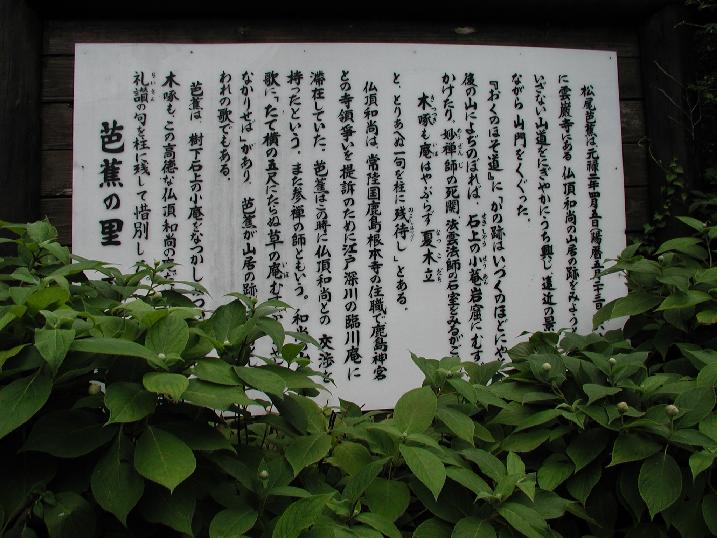 松尾芭蕉は元禄二年四月五日(陽暦五月二十三日
に雲巌寺にある仏頂和尚の山居の跡をみよう
いざない山道をにぎやかにうち興じ遠近の景
ながら山門をくぐった。
『おくのほそ道』に「かの跡はいづくのほどにや
後の山によぢのぼれば、石上の小庵岩窟にむす
かけたり、妙禅師の死関、法雲法師の石室をみるがご
木啄も庵はやぶらず夏木立
と、とりあへぬ一句を柱に残侍し」とある。
仏頂和尚は、常陸国鹿島根本寺の住職で鹿島神宮
との寺領争いを提訴のために江戸深川の臨川庵に
滞在していた。芭蕉はこの時に仏頂和尚との交渉を
持ったという。また参禅の師ともいう。和尚
歌に「たて横の五尺にたらぬ草の庵む
なかりせば」があり、芭蕉が山居の跡
われの歌でもある。
芭蕉は、樹下石上の小庵をなつかし
木啄も、この高徳な仏頂和尚の
礼讃の句を柱に残して惜別し
芭蕉の里